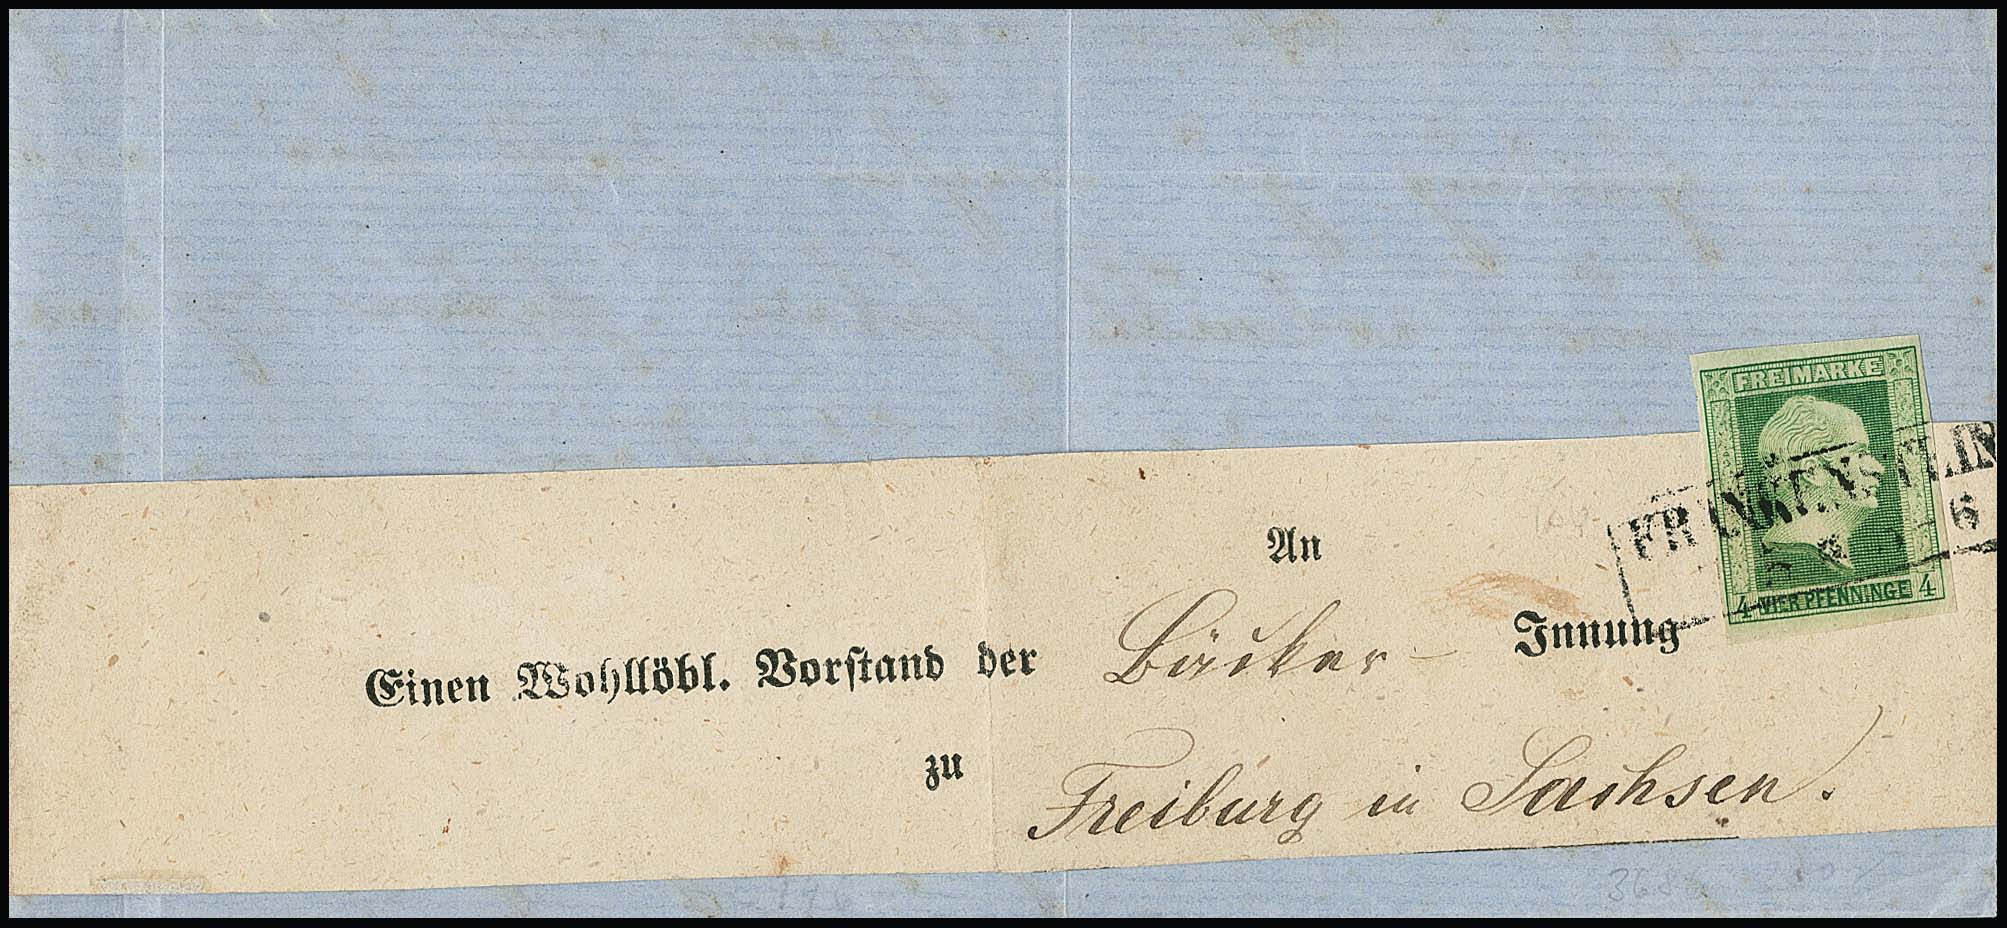 FREIMARKE
FRANKENSTEIN
6
4 VIER PFENNINGE 4
An
Einen Wohllöbl. Vorstand der Bäcker- Innung
zu Freiburg in Sachsen.